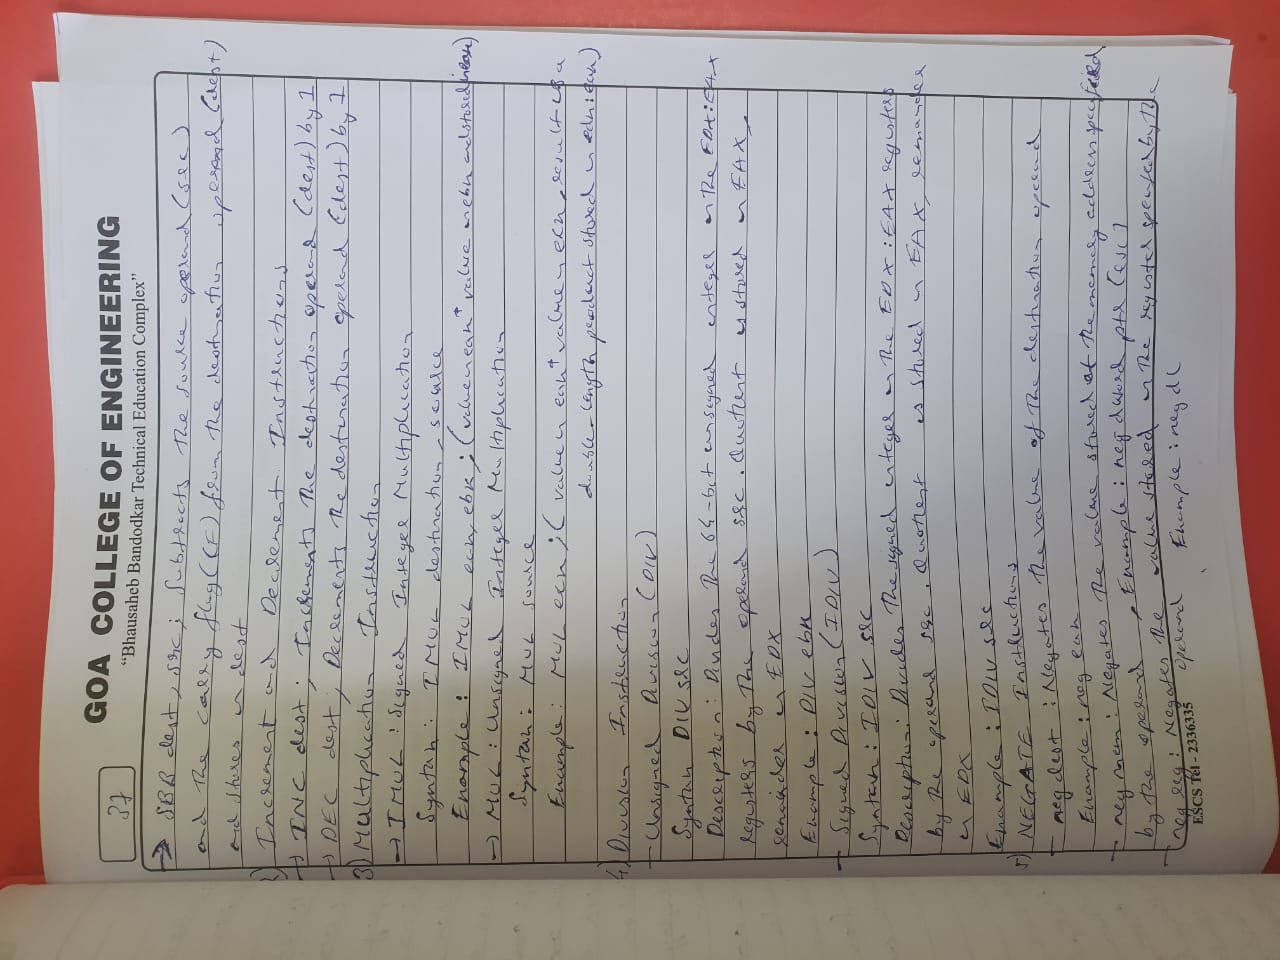 37
GOA COLLEGE OF ENGINEERING
"Bhausaheb Bandodkar Technical Education Complex"
→ SBB dest, src ; Subtracts the source operand (src)
and the carry flag (CF) from the destination operand (dest)
and stores in dest
2) Increment and Decrement Instructions
→ INC dest ; Increments the destination operand (dest) by 1
→ DEC dest ; Decrements the destination operand (dest) by 1
3) Multiplication Instruction
→ IMUL : Signed Integer Multiplication
Syntax : IMUL destination, source
Example : IMUL ecx, ebx ; (value in eax * value in ebx and stored in eax)
→ MUL : Unsigned Integer Multiplication
Syntax : MUL source
Example : MUL ecx ; (value in eax * value in ecx, result is a
double-length product stored in edx:eax)
4) Division Instruction
- Unsigned Division (DIV)
Syntax DIV src
Description : Divides the 64-bit unsigned integer in the EDX:EAX
registers by the operand src. Quotient is stored in EAX,
remainder in EDX
Example : DIV ebx
- Signed Division (IDIV)
Syntax : IDIV src
Description : Divides the signed integer in the EDX:EAX registers
by the operand src. Quotient is stored in EAX, remainder
in EDX
Example : IDIV src
5) NEGATE Instructions
- neg dest : Negates the value of the destination operand
Example : neg eax
- neg mem : Negates the value stored at the memory address specified
by the operand, Example : neg dword ptr [esi]
- neg reg : Negates the value stored in the register specified by the
operand Example : neg dl
ESCS Tel - 2336335